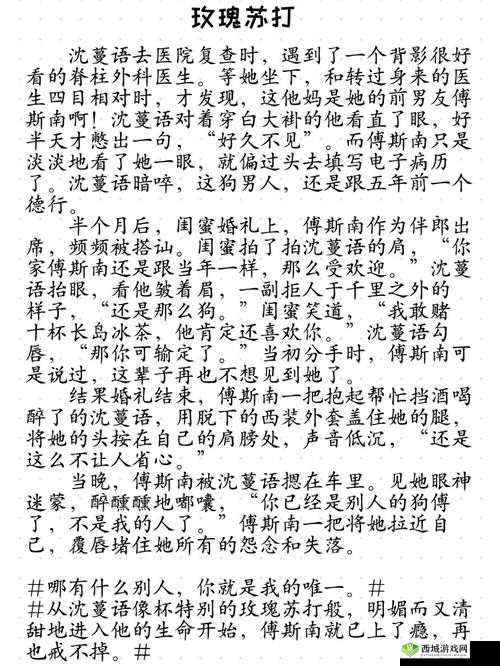 玫瑰苏打
沈蔓语去医院复查时，遇到了一个背影很好
看的脊柱外科医生。等她坐下，和转过身来的医
生四目相对时，才发现，这他妈是她的前男友傅
斯南啊！沈蔓语对着穿白大褂的他看直了眼，好
半天才憋出一句，“好久不见”。而傅斯南只是
淡淡地看了她一眼，就偏过头去填写电子病历
了。沈蔓语暗啐，这狗男人，还是跟五年前一个
德行。
半个月后，闺蜜婚礼上，傅斯南作为伴郎出
席，频频被搭讪。闺蜜拍了拍沈蔓语的肩，“你
家傅斯南还是跟当年一样，那么受欢迎。”沈蔓
语抬眼，看他皱着眉，一副拒人于千里之外的
样子，“还是那么狗。”闺蜜笑道，“我敢赌
十杯长岛冰茶，他肯定还喜欢你。”沈蔓语勾
唇，“那你可输定了。”当初分手时，傅斯南可
是说过，这辈子再也不想见到她了。
结果婚礼结束，傅斯南一把抱起帮忙挡酒喝
醉了的沈蔓语，用脱下的西装外套盖住她的腿，
将她的头按在自己的肩膀处，声音低沉，“还是
这么不让人省心。”
当晚，傅斯南被沈蔓语摁在车里。见她眼神
迷蒙，醉醺醺地嘟囔，“你已经是别人的狗傅
了，不是我的人了。”傅斯南一把将她拉近自
己，覆唇堵住她所有的怨念和失落。
#哪有什么别人，你就是我的唯一。#
#从沈蔓语像杯特别的玫瑰苏打般，明媚而又清
甜地进入他的生命开始，傅斯南就已上了瘾，再
也戒不掉。#
西城游戏网